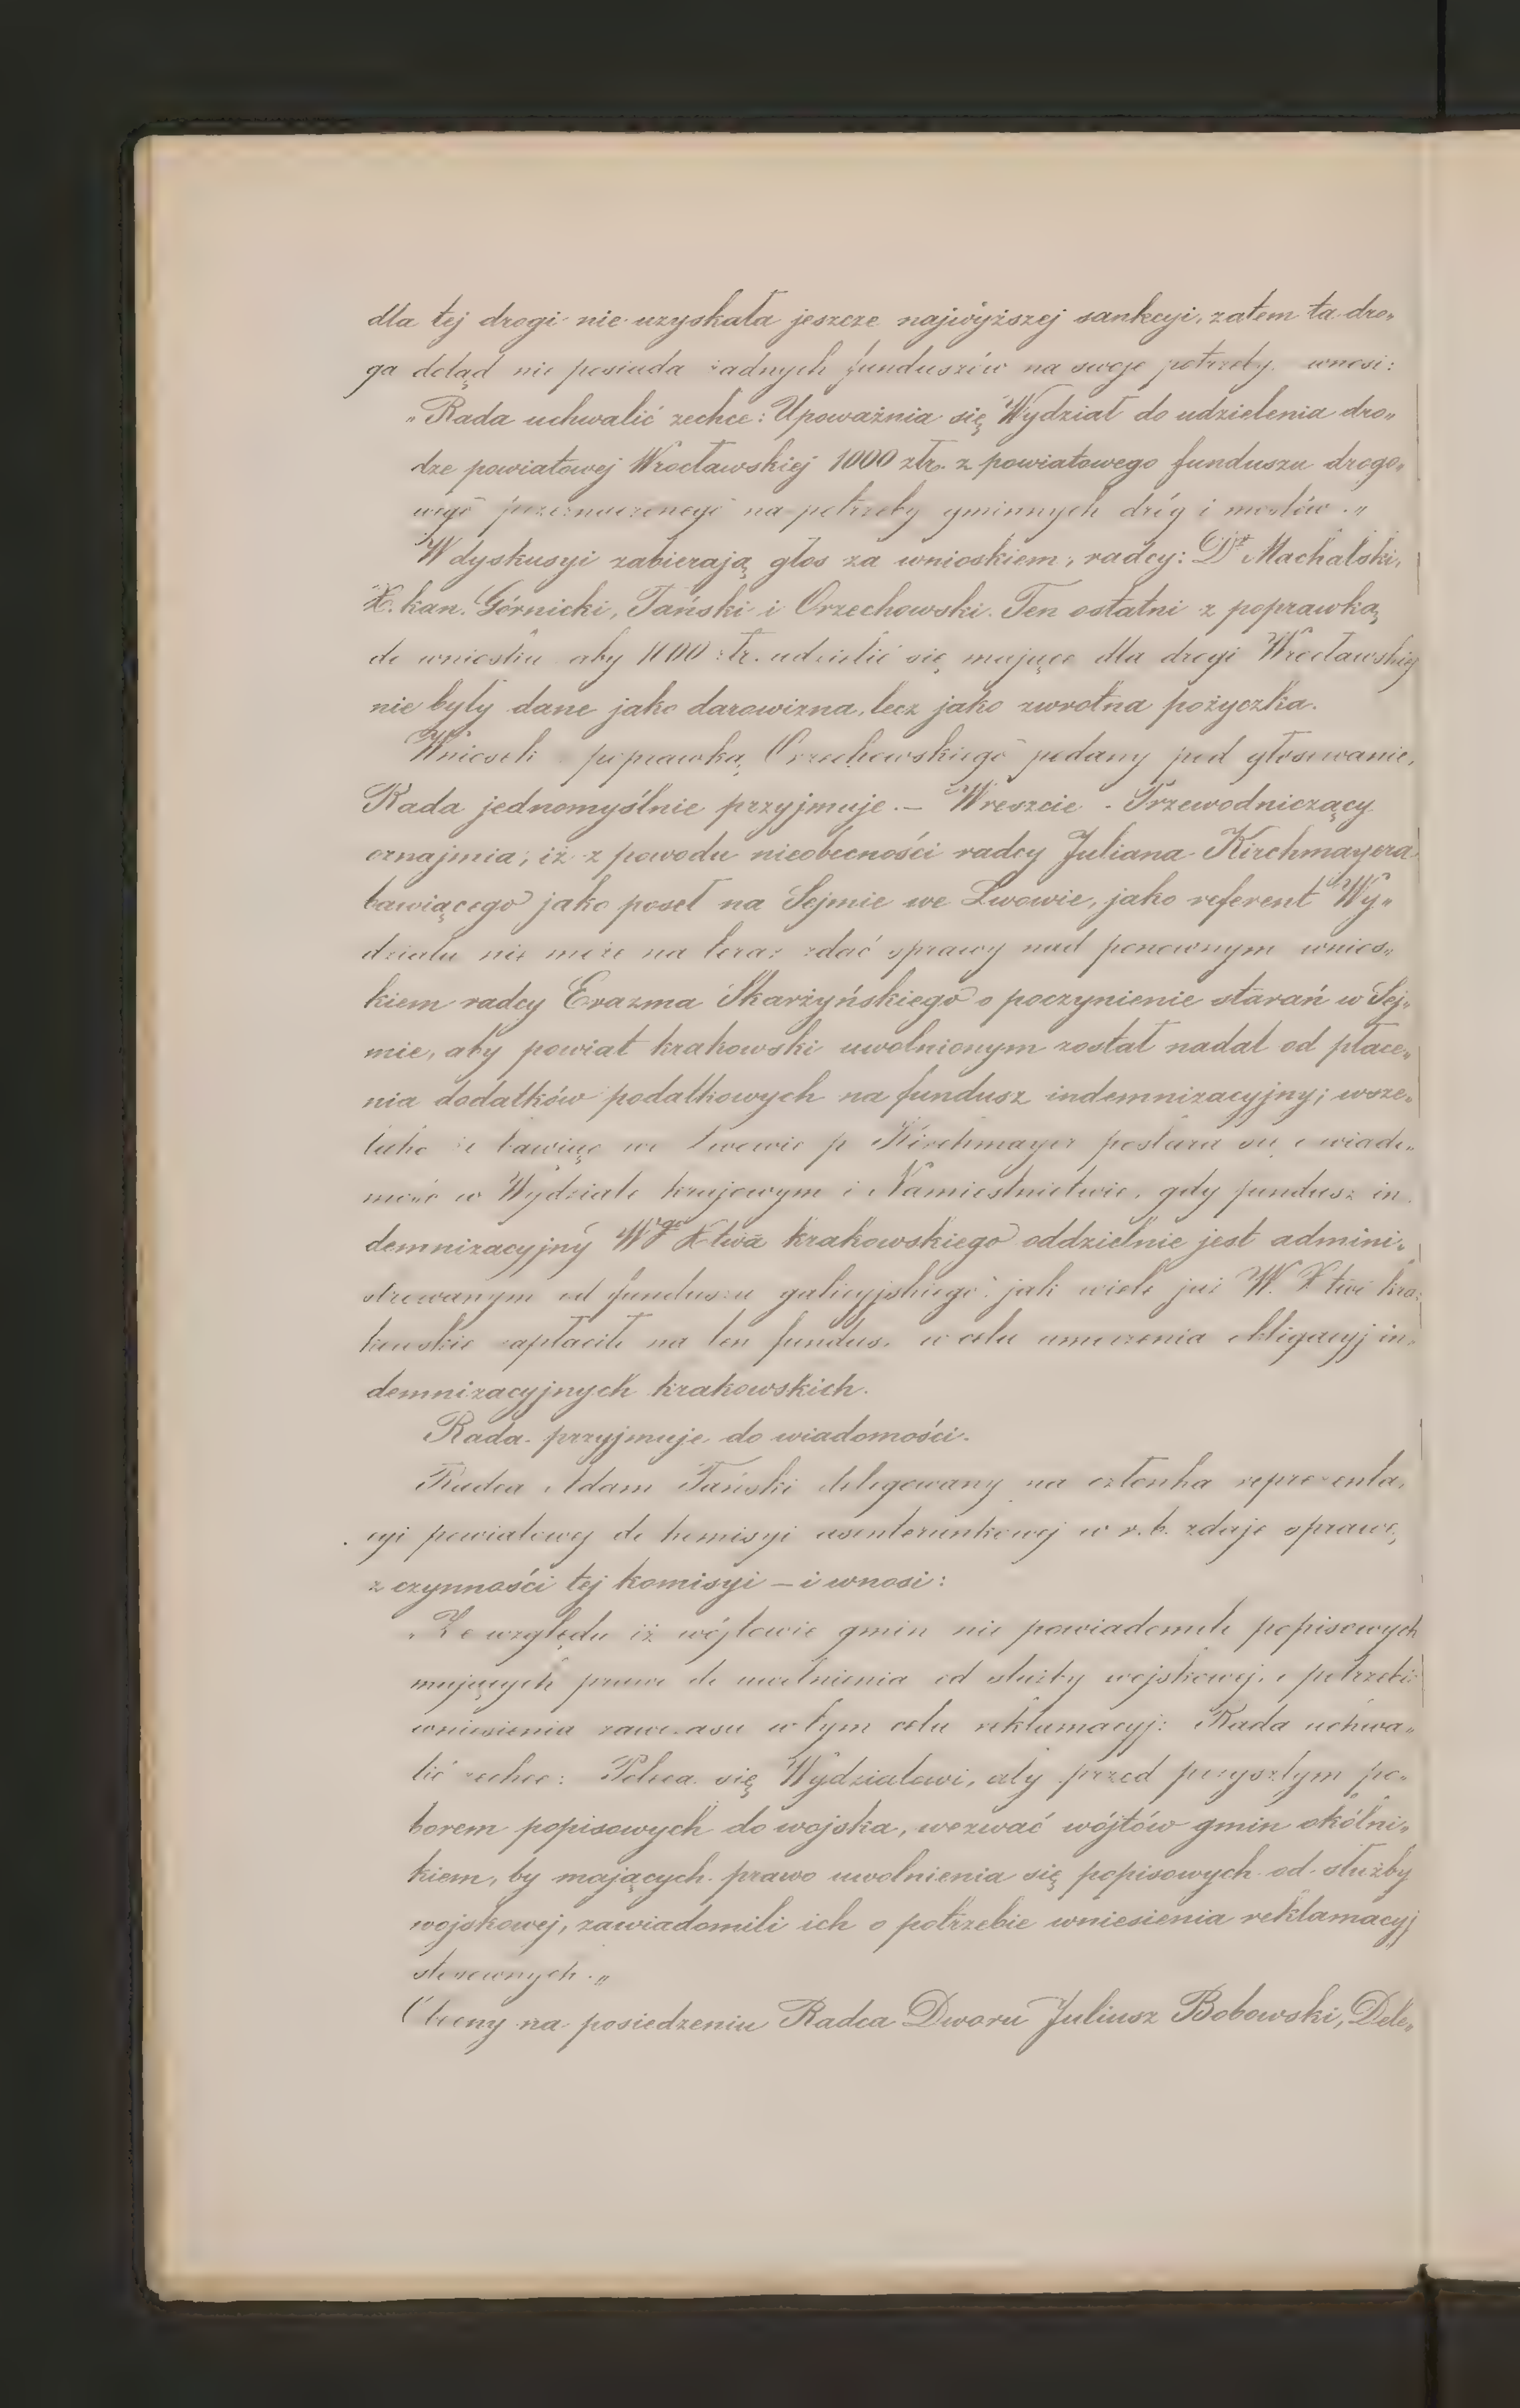 dla tej drogi nie uzyskała jeszcze najwyższej sankcyi, zatem ta dro„
ga dotąd nie posiada żadnych funduszów na swoje potrzeby. wnosi:
„Rada uchwalić zechce: Upoważnia się Wydział do udzielenia dro„
dze powiatowej Wrocławskiej 1000 złr. z powiatowego funduszu drogo„
wego przeznaczonego na potrzeby gminnych dróg i mostów.„
W dyskusyi zabierają głos za wnioskiem, radcy: Dr Machalski,
X. kan. Górnicki, Tański i Orzechowski. Ten ostatni z poprawką
do wniosku aby 1000 złr. udzielić się mające dla drogi Wrocławskiej
nie były dane jako darowizna, lecz jako zwrotna pożyczka.
Wniosek poprawką Orzechowskiego podany pod głosowanie,
Rada jednomyślnie przyjmuje. — Wreszcie Przewodniczący
oznajmia, iż z powodu nieobecności radcy Juliana Kirchmayera
bawiącego jako poseł na Sejmie we Lwowie, jako referent Wy„
działu nie może na teraz zdać sprawy nad ponownym wnios„
kiem radcy Erazma Skarżyńskiego o poczynienie starań w Sej„
mie, aby powiat krakowski uwolnionym został nadal od płace„
nia dodatków podatkowych na fundusz indemnizacyjny; wsze„
lako że bawiąc we Lwowie p Kirchmayer postara się o wiado„
mość w Wydziale krajowym i Namiestnictwie, gdy fundusz in
demnizacyjny Wgo Xtwa krakowskiego oddzielnie jest admini„
strowanym od funduszu galicyjskiego: jak wiele już W. Xtwo kra„
kowskie zapłaciło na ten fundusz w celu umorzenia obligacyj in„
demnizacyjnych krakowskich.
Rada przyjmuje do wiadomości.
Radca Adam Tański delegowany na członka reprezenta„
cyi powiatowej do komisyi asenterunkowej w r. b. zdaje sprawę
z czynności tej komisyi — i wnosi:
„Ze względu iż wójtowie gmin nie powiadomili popisowych
mających prawo do uwolnienia od służby wojskowej, o potrzebie
wniesienia zawczasu w tym celu reklamacyj: Rada uchwa„
lić zechce: Poleca się Wydziałowi, aby przed przyszłym po„
borem popisowych do wojska, wezwać wójtów gmin okólni„
kiem, by mających prawo uwolnienia się popisowych od służby
wojskowej, zawiadomili ich o potrzebie wniesienia reklamacyj
stosownych.„
Obecny na posiedzeniu Radca Dworu Juliusz Bobowski, Dele„